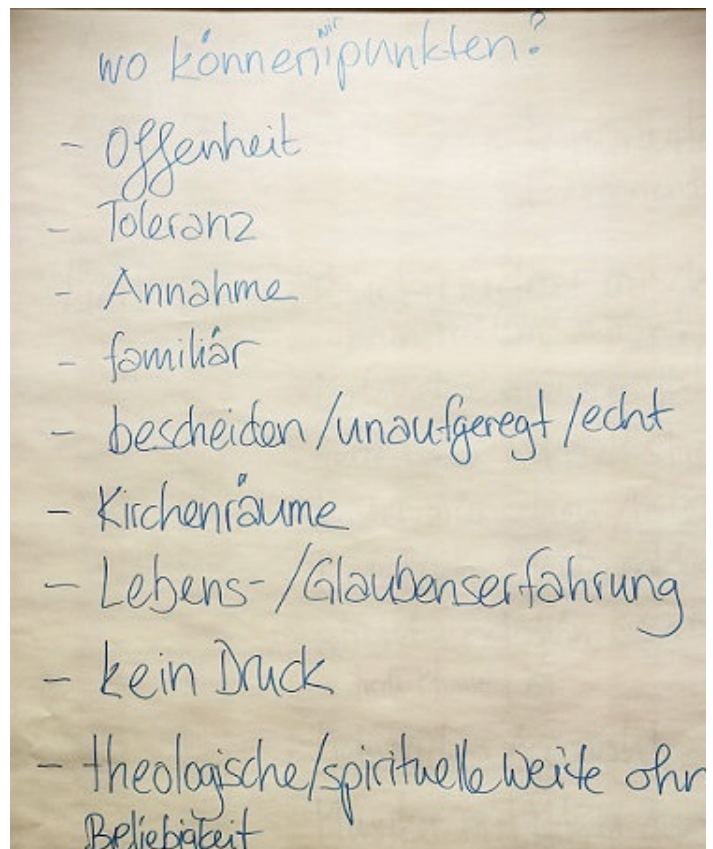 wo können wir punkten?
- Offenheit
- Toleranz
- Annahme
- familiär
- bescheiden/unaufgeregt/echt
- Kirchenräume
- Lebens-/Glaubenserfahrung
- kein Druck
- theologische/spirituelle Weite ohn
Beliebigkeit